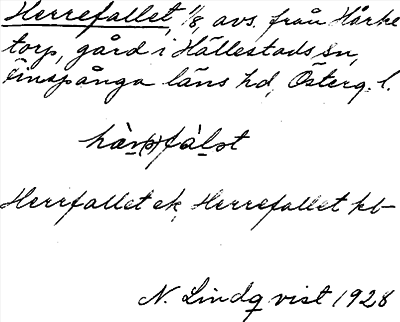 Herrefallet, 1/8, avs. från Hårke
torp, gård i Hällestads sn,
Finspånga läns hd, Österg. l.
hàr̩(ə)fàl̩ət
Herrfallet ek, Herrefallet kb
N. Lindqvist 1928